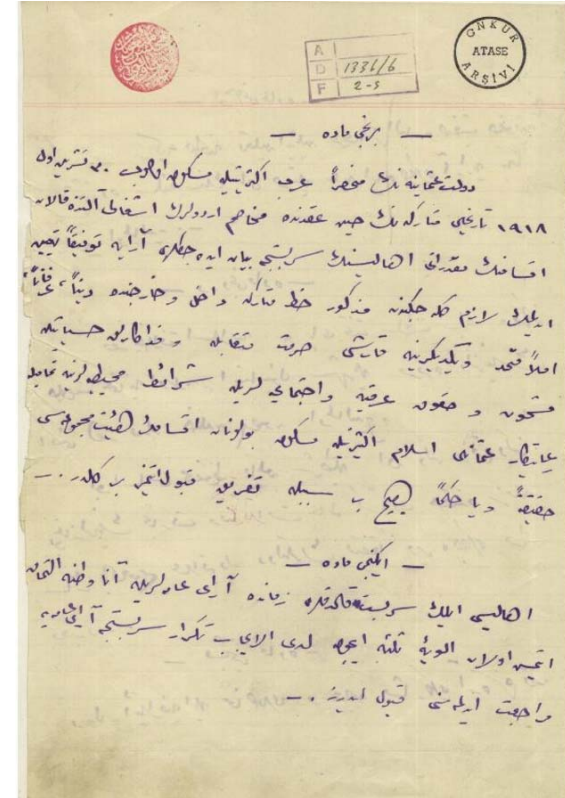 GNKUR
ATASE
ARŞİVİ
A
D 1336/6
F 2-5
— برنجی ماده —
دولت عثمانیه‌نك منحصراً عرب اكثریتیله مسكون اولوب ٣٠ تشرین اول
١٩١٨ تاریخلی متاركه‌نك حین عقدنده مخاصم اردولرك اشغالی آلتنده قالان
اقسامنك مقدراتی اهالیسنك سربستجه بیان ایده‌جكلری آرایه توفیقاً تعیین
ایدلمك لازم كله‌جكندن مذكور خط متاركه داخل و خارجنده دیناً، عرقاً،
املاً متحد و یكدیگرینه قارشی حرمت متقابله و فداكارلق حسیاتیله
مشحون و حقوق عرقیه و اجتماعیه‌لریله شرائط محیطیه‌لرینه تمامیله
رعایتكار عثمانلی اسلام اكثریتیله مسكون بولونان اقسامك هیئت مجموعه‌سی
حقیقةً ویا حكماً هیچ بر سببله تفریق قبول ایتمز بر كلدر. —
— ایكنجی ماده —
اهالیسی ایلك سربست قالدقلری زمانده آرای عامه‌لریله آنا وطنه التحاق
ایتمش اولان الویهٔ ثلثه ایچون لدی الایجاب تكرار سربستجه آرای عامه‌یه
مراجعت ایدلمه‌سنی قبول ایدرز. —